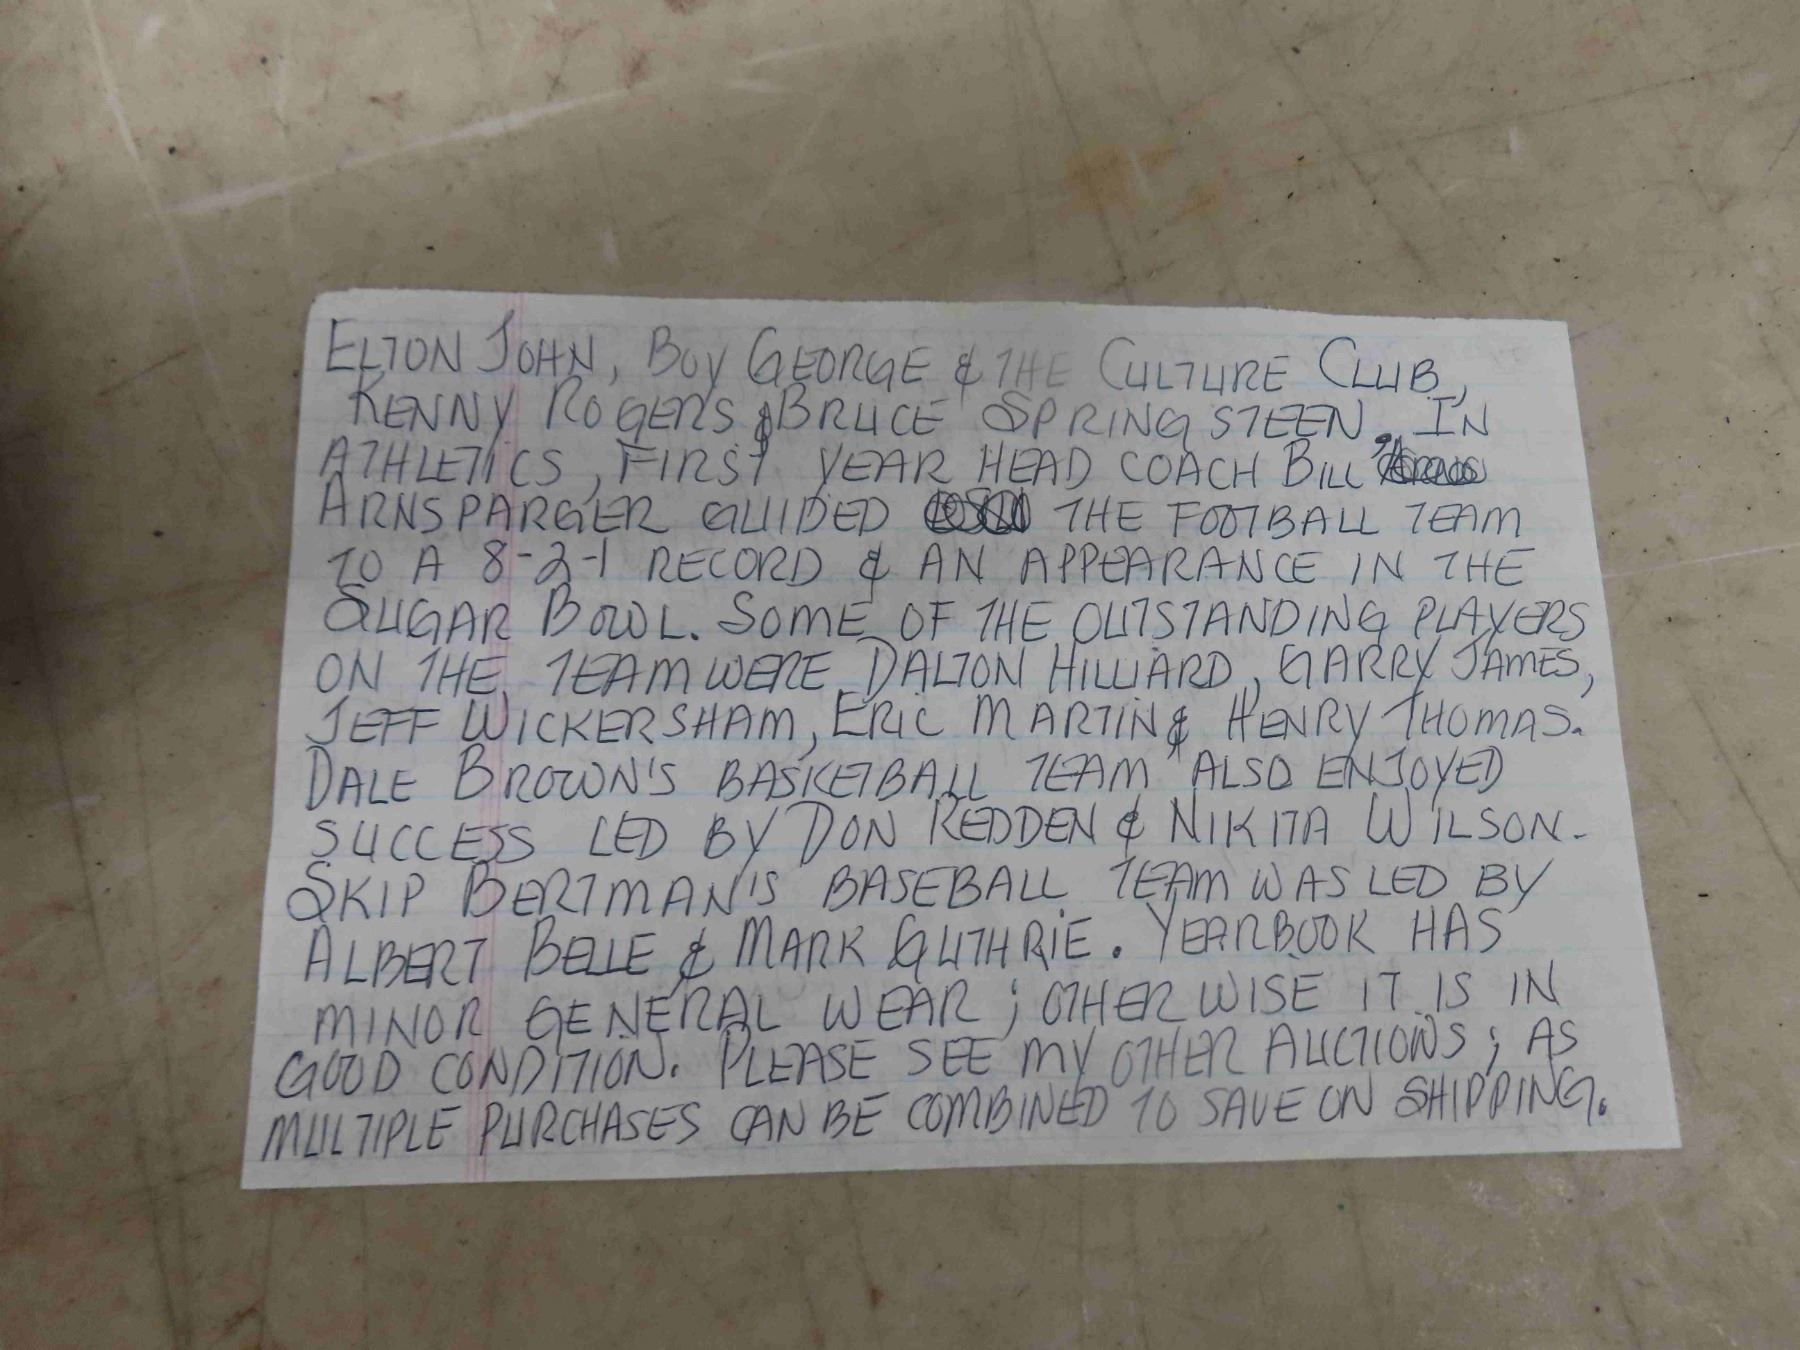 ELTON JOHN, BOY GEORGE & THE CULTURE CLUB,
KENNY ROGERS & BRUCE SPRINGSTEEN. IN
ATHLETICS, FIRST YEAR HEAD COACH BILL
ARNSPARGER GUIDED THE FOOTBALL TEAM
TO A 8-2-1 RECORD & AN APPEARANCE IN THE
SUGAR BOWL. SOME OF THE OUTSTANDING PLAYERS
ON THE TEAM WERE DALTON HILLIARD, GARRY JAMES,
JEFF WICKERSHAM, ERIC MARTIN & HENRY THOMAS.
DALE BROWN'S BASKETBALL TEAM ALSO ENJOYED
SUCCESS LED BY DON REDDEN & NIKITA WILSON.
SKIP BERTMAN'S BASEBALL TEAM WAS LED BY
ALBERT BELLE & MARK GUTHRIE. YEARBOOK HAS
MINOR GENERAL WEAR; OTHERWISE IT IS IN
GOOD CONDITION. PLEASE SEE MY OTHER AUCTIONS; AS
MULTIPLE PURCHASES CAN BE COMBINED TO SAVE ON SHIPPING.